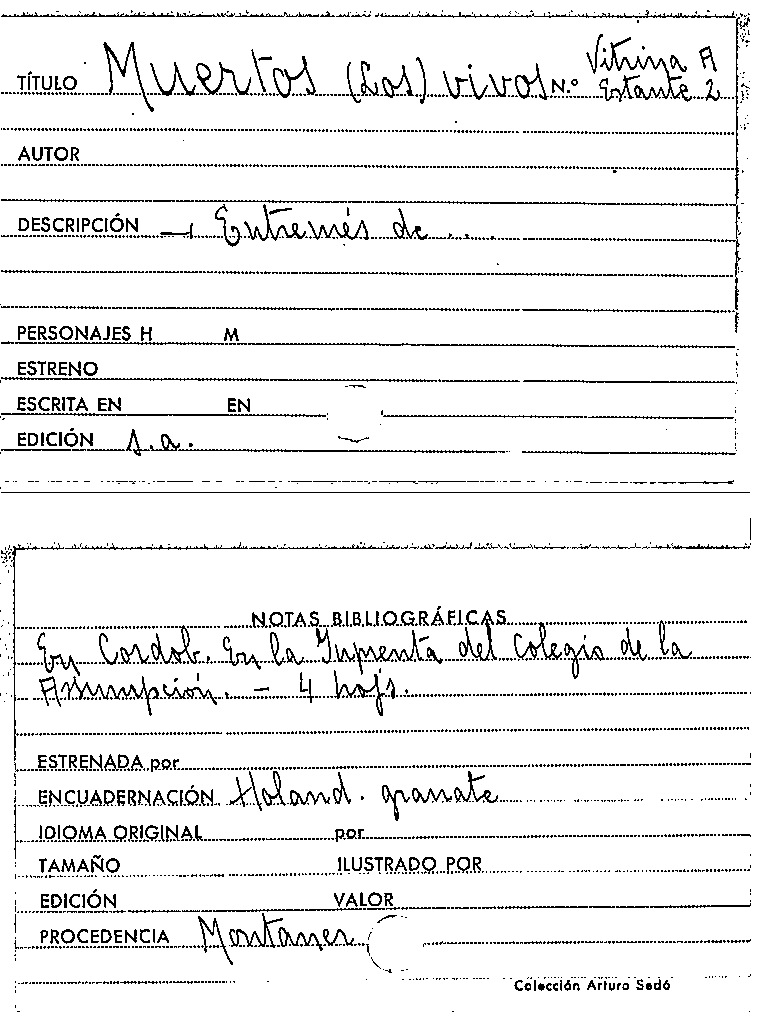 TÍTULO Muertos (Los) vivos N.º Vitrina A
Estante 2
AUTOR
DESCRIPCIÓN — Entremés de ...
PERSONAJES H M
ESTRENO
ESCRITA EN EN
EDICIÓN s.a.
NOTAS BIBLIOGRÁFICAS
En Cordob. En la Imprenta del Colegio de la
Assumpción. - 4 hojs.
ESTRENADA por
ENCUADERNACIÓN Holand. granate
IDIOMA ORIGINAL por
TAMAÑO ILUSTRADO POR
EDICIÓN VALOR
PROCEDENCIA Montaner
Colección Arturo Sedó